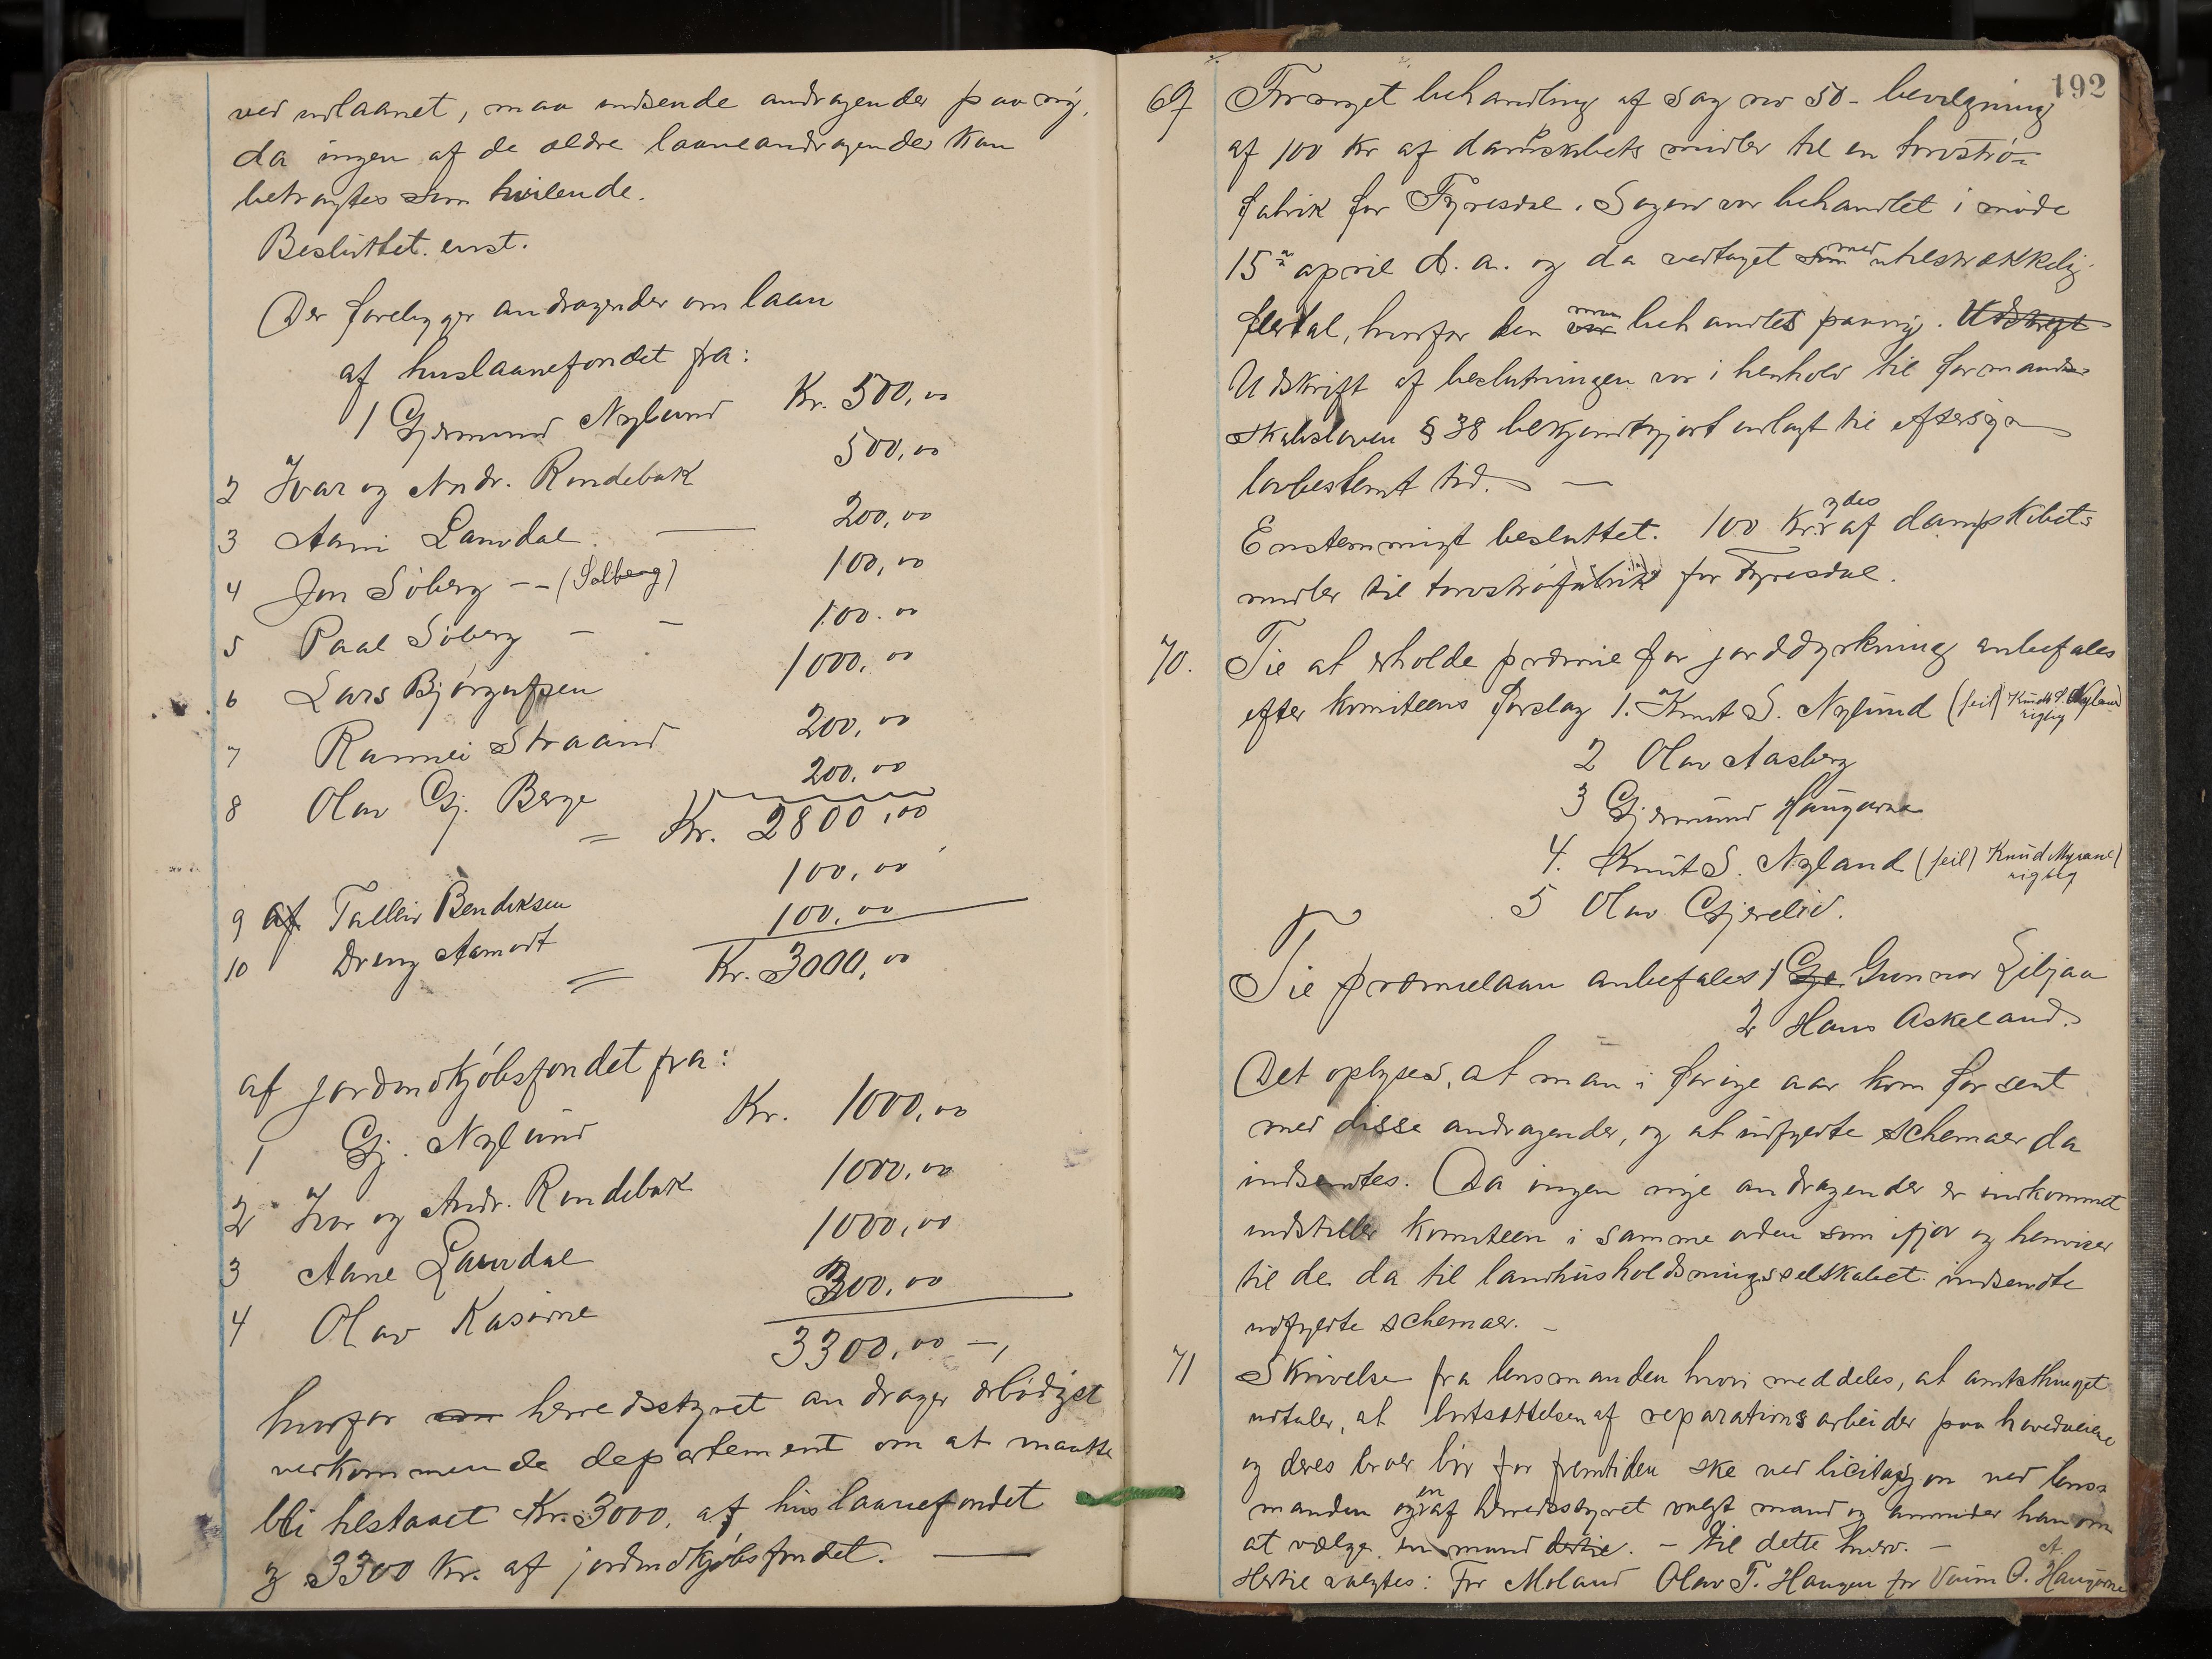 ved udlaanet, maa indsende andragender paa ny,
da ingen af de ældre laaneandragender kan
betragtes som hvilende.
Besluttet enst.
Der foreligger andragender om laan
af huslaanefondet fra:
1 Gjermund Nylund Kr. 500,00
2 Ivar og Andr. Rondebak 500,00
3 Aani Laurdal. — 200,00
4 Jon Söberg -- (Solberg) 100,00
5 Paal Söberg - - 100.00
6 Lars Bjørgufsen 1000,00
7 Rannei Straand 200,00
8 Olav Gj. Berge 200,00
= Kr. 2800,00
9 af Talleiv Bendiksen 100,00
10 Dreng Aamodt 100,00
= Kr. 3000,00
af jordindkjöbsfondet fra:
1 Gj. Nylund Kr. 1000,00
2 Ivar og Andr. Rondebak 1000,00
3 Aane Laurdal 1000,00
4 Olav Kasine 300,00
3300,00 -,
hvorfor herredsstyret andrager ærbödigst
vedkommende departement om at maatte
bli tilstaaet Kr. 3000, af huslaanefondet
og 3300 Kr. af jordindkjøbsfondet. —
192
69 Fornyet behandling af sag no 50 - bevilgning
af 100 Kr af dampskibets midler til en torvströ-
fabrik for Fyresdal. Sagen var behandlet i møde
15de april d. a. og da vedtaget som med utilstrækkelig
flertal, hvorfor den var maa behandles paany. Udskrift
Udskrift af beslutningen var i henhold til formand-
skabsloven § 38 bekjendtgjort udlagt til eftersyn
lovbestemt tid. —
Enstemmigt besluttet. 100 Kr. ydes af dampskibets
midler til torvströfabrik for Fyresdal.
70. Til at erholde præmie for jorddyrkning anbefales
efter komiteens forslag 1. Knut S. Nylund (feil) Knudt S. Nyland rigtig
2 Olav Aasberg
3 Gjermund Haugarne
4. Knut S. Nyland (feil) Knud Myrane) rigtig
5 Olav Gjerelid.
Til præmielaan anbefales 1 Gje Gunnar Liljaa
2 Hans Askeland.
Det oplyses, at man i forrige aar kom for sent
med disse andragender, og at udfyldte schemaer da
indsendtes. Da ingen nye andragender er indkommet
indstiller komiteen i samme orden som ifjor og henviser
til de da til landhusholdningsselskabet indsendte
udfyldte schemaer. -
71 Skrivelse fra lensmanden hvori meddeles, at amtsthinget
udtaler, at bortsættelsen af reparationsarbeider paa hovedveiene
og deres broer bör for fremtiden ske ved licitasjon ved lens-
manden og en af herredsstyret valgt mand og anmoder han om
at vælge en mand dertil. - til dette hverv. -
Hertil valgtes: For Moland Olav T. Haugen for Veum O. A. Haugarne